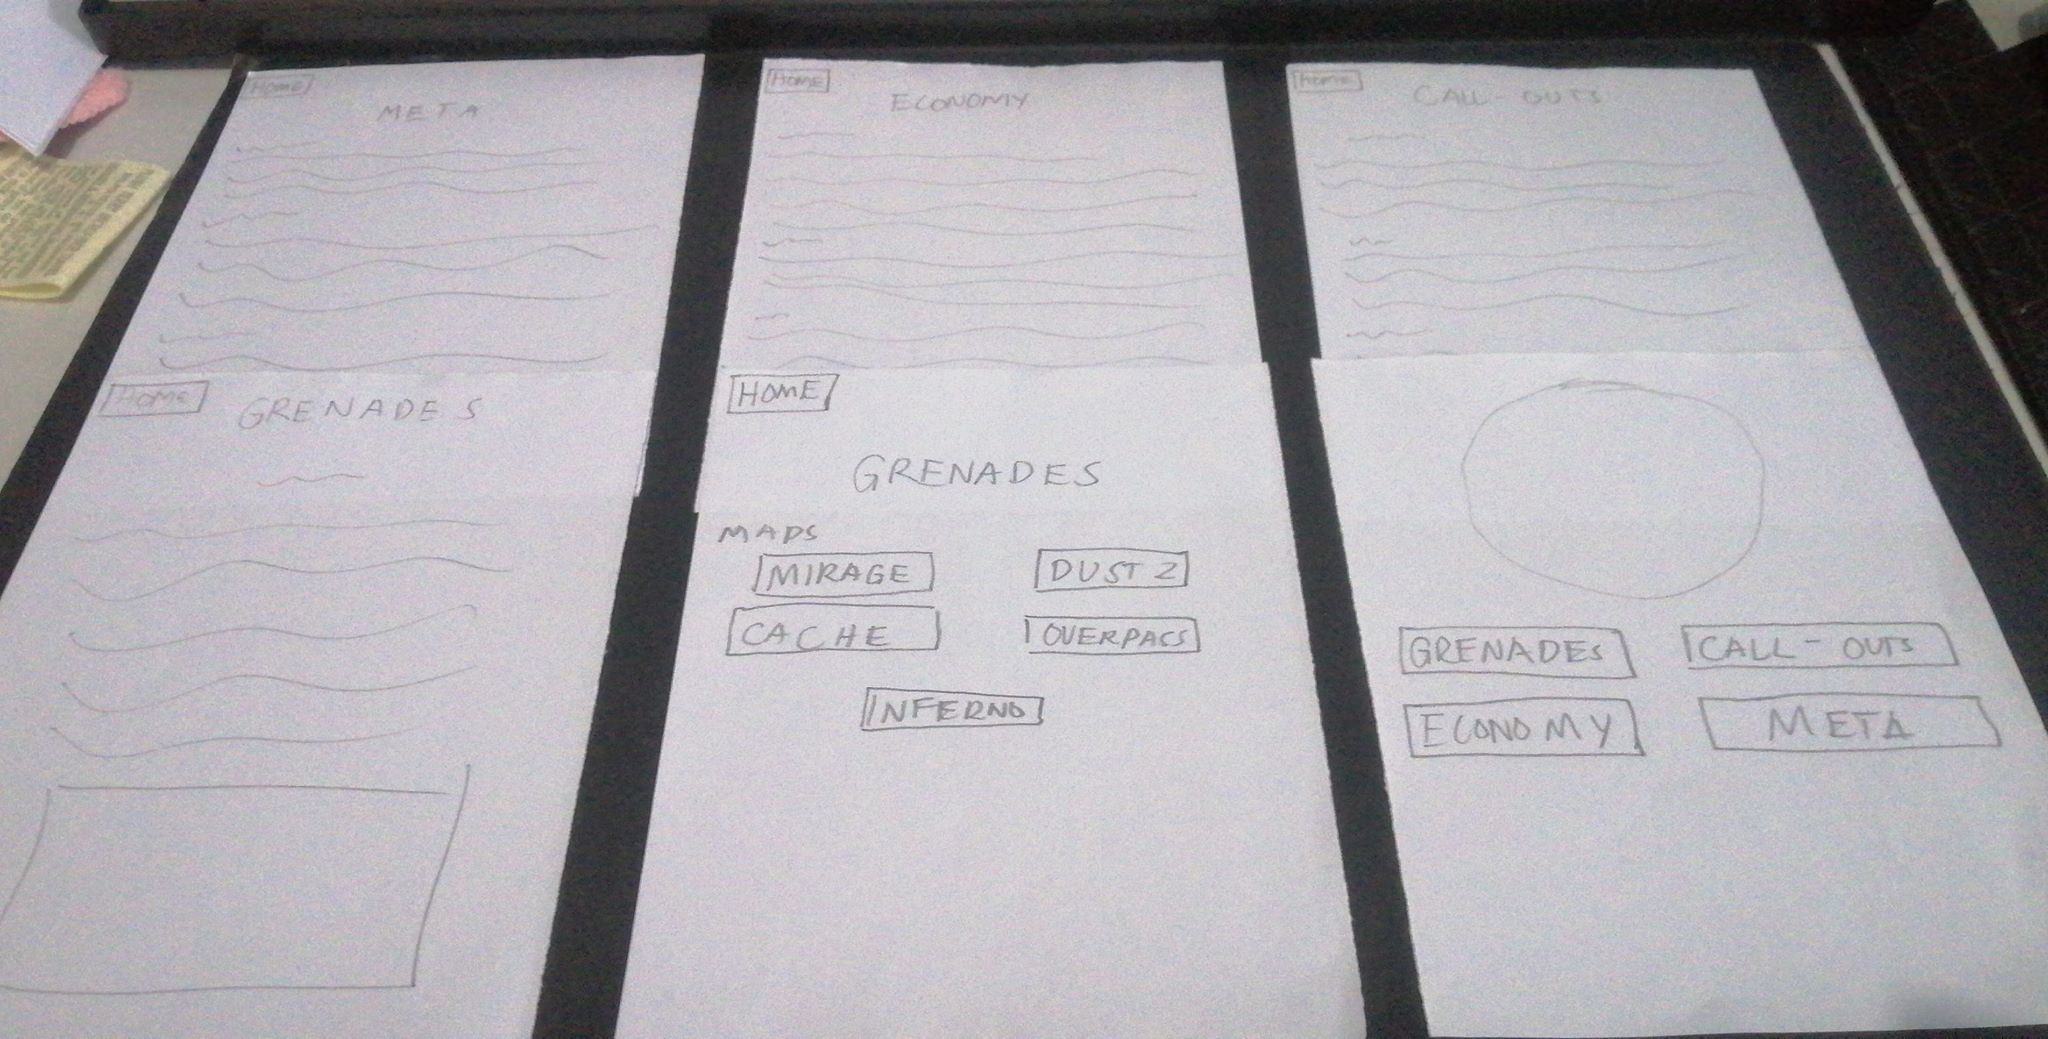 HOME
META
HOME
ECONOMY
HOME
CALL-OUTS
HOME
GRENADES
HOME
GRENADES
MAPS
MIRAGE
DUST 2
CACHE
OVERPACS
INFERNO
GRENADES
CALL-OUTS
ECONOMY
META